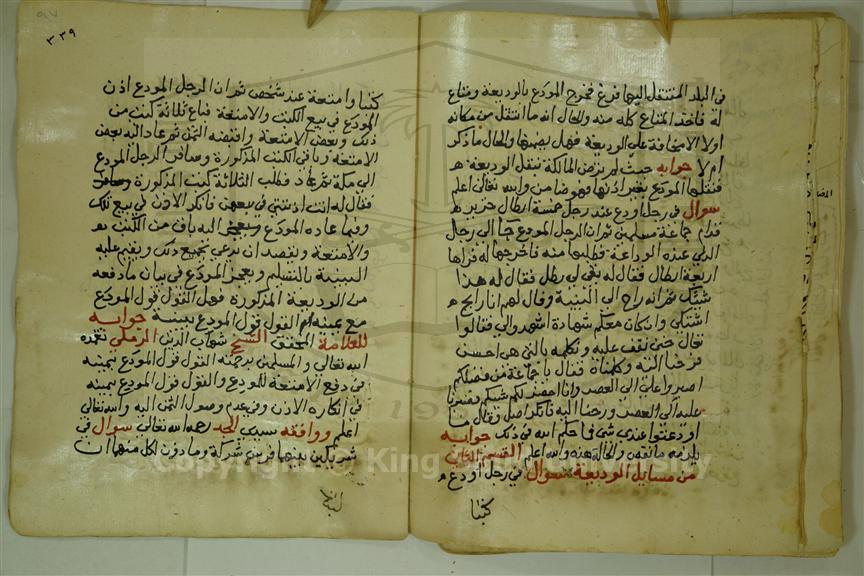 في البلد المنتقل اليها فرغ فخرج المودَع بالوديعة ومتاع
له فاخذ المتاع كله منه والحال انه ما انتقل من مكانه
اولا الا مخافة على الوديعة فهل يضمنها والحال ما ذكر
ام لا جوابه حيث لم يرض المالكة بنقل الوديعة
فنقلها المودع بغير اذنها فهو ضامن والله تعالى اعلم
سوال في رجل اودع عند رجل خمسة ارطال حرير
قدام جماعة مسلمين ثم ان الرجل المودع جا الى رجل
الذي عنده الوداعة فطلبها منه فاخرجها له فراها
اربعة ارطال فقال له بقي لي رطل فقال له هذا
شئك ثم انه راح الى البينة وقال لهم انا رايح
اشتكي وان كان معكم شهادة اشهدوا لي فقالوا
تعال حتى نقف عليه ونكلمه بالتي هي احسن
فرحنا اليه وكلمناه فقال يا جماعة من فضلكم
اصبروا علي الى العصر وانا احضر لكم شيكم فصبرنا
عليه الى العصر ورحنا اليه فانكر اصل وقال ما
اودعتوا عندي شي فما حكم الله في ذلك جوابه
يلزمه ما نقص والحالة هذه والله اعلم القسم الثاني
من مسايل الوديعة سوال في رجل اودع
كتبا
٣٣٩
كتبا وامتعة عند شخص ثم ان الرجل المودع اذن
المودَع في بيع الكتب والامتعة فباع ثلاثة كتب من
ذلك وبعض الامتعة واقبضه الثمن ثم عاد اليه بعض
الامتعة وباقي الكتب المذكورة وسافر الرجل المودع
الى مكة ثم عاد فطلب الثلاثة كتب المذكورة
فقال له انت اذنتني في بيعهن فانكر الاذن في بيع تلك
وفيما عاده المودَع اليه باقي من الكتب
والامتعة ويقصد ان يدعي بجميع ذلك ويقيم عليه
البينة بالتسليم ويعجز المودَع في بيان ما دفعه
من الوديعة المذكورة فهل القول قول المودَع
مع يمينه ام القول قول المودع بيمينه جوابه
للعلامة المحقق الشيخ شهاب الدين الرملي تغمده
الله تعالى والمسلمين برحمته القول قول المودَع بيمينه
في دفع الامتعة للمودع والقول قول المودع بيمينه
في انكاره الاذن وفي عدم وصول الثمن اليه والله تعالى
اعلم ووافقه سيدي الجد رحمه الله تعالى سوال في
شريكين بينهما فرس شركة وماذون لكل منهما ان